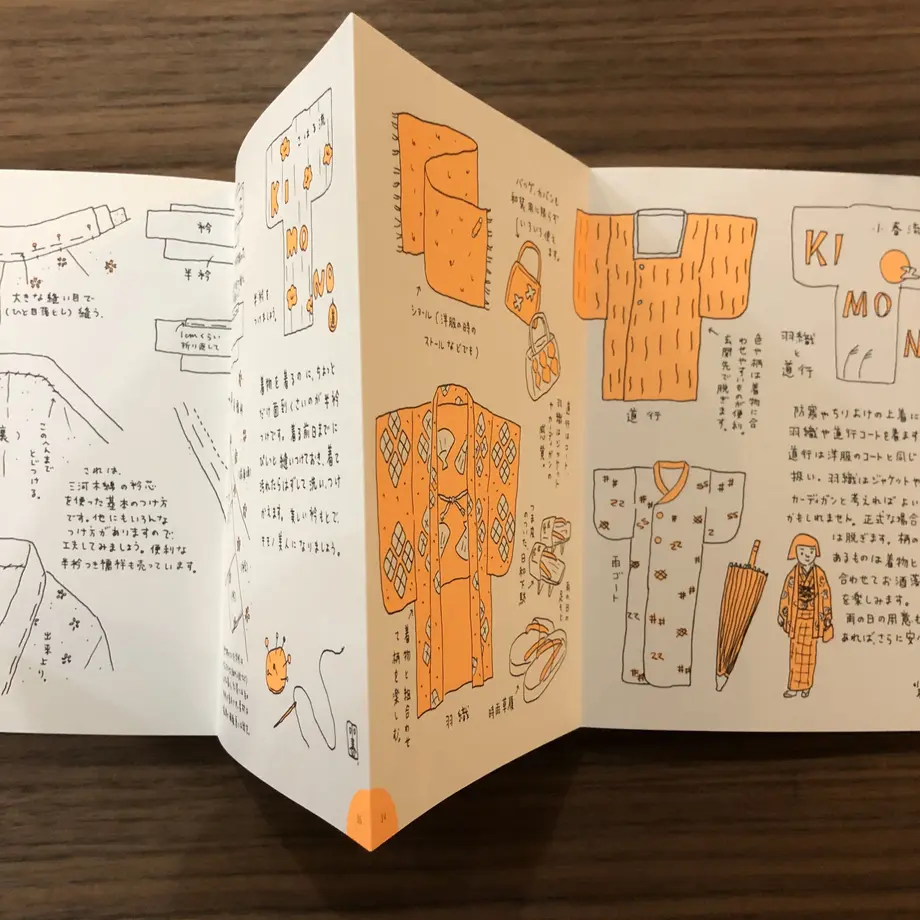 大きな縫い目で
(ひと目落とし)縫う.
衿
半衿
1cmくらい
折り返して
このへんまで
とじつける.
これは.
三河木綿の衿芯
を使った基本のつけ方
です。他にもいろんな
つけ方がありますので
工夫してみましょう。便利な
半衿つき襦袢も売っています.
出来上り.
こはる流
KI
MO
NO
半衿を
つけましょう.
着物を着るのに、ちょっと
だけ面到くさいのが半衿
つけです。着る前日までに
汚れたらはずして洗い、つけ
かえます。美しい衿もとで、
キモノ美人になりましょう。
バッグ、カバンも
和装用に限らず
いろいろ使え
ます。
ショール(洋服の時の
ストールなどでも)
着物と組合わせ
て柄を楽しむ。
羽織
時雨草履
色や柄は着物に合
わせやすいものが便利。
玄関先で脱ぎます。
道行
雨ゴート
小春流
KI
MO
N
羽織
と
道行
防寒やちりよけの上着に
羽織や道行コートを着ます
道行は洋服のコートと同じ
扱い。羽織はジャケットや
カーディガンと考えればよい
かもしれません。正式な場合
は脱ぎます。柄の
あるものは着物と
合わせてお洒落
を楽しみます。
雨の日の用意も
あればさらに安